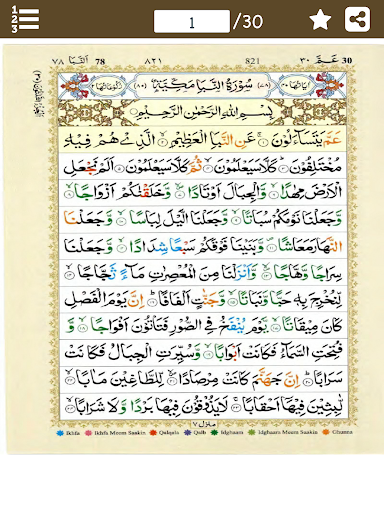 1 2 3
1 /30
٧٨ اَلنَّبَا 78 ٨٢١ 821 عَـمَّ ٣٠ 30
سُوْرَةُ النَّبَاِ مَكِّيَّةٌ
بِسْمِ اللّٰهِ الرَّحْمٰنِ الرَّحِيْمِ
عَمَّ يَتَسَآءَلُوْنَ ۚ عَنِ النَّبَاِ الْعَظِيْمِ ۙ الَّذِيْ هُمْ فِيْهِ
مُخْتَلِفُوْنَ ؕ كَلَّا سَيَعْلَمُوْنَ ۙ ثُمَّ كَلَّا سَيَعْلَمُوْنَ اَلَمْ نَجْعَلِ
الْاَرْضَ مِهٰدًا ۙ وَّالْجِبَالَ اَوْتَادًا ۪ۙ وَّخَلَقْنٰكُمْ اَزْوَاجًا ۙ
وَّجَعَلْنَا نَوْمَكُمْ سُبَاتًا ۙ وَّجَعَلْنَا الَّيْلَ لِبَاسًا ۙ وَّجَعَلْنَا
النَّهَارَ مَعَاشًا ۪ وَبَنَيْنَا فَوْقَكُمْ سَبْعًا شِدَادًا ۙ وَّجَعَلْنَا
سِرَاجًا وَّهَّاجًا ۪ۙ وَّاَنْزَلْنَا مِنَ الْمُعْصِرٰتِ مَآءً ثَجَّاجًا ۙ
لِّنُخْرِجَ بِهٖ حَبًّا وَّنَبَاتًا ۙ وَّجَنّٰتٍ اَلْفَافًا ؕ اِنَّ يَوْمَ الْفَصْلِ
كَانَ مِيْقَاتًا ۙ يَّوْمَ يُنْفَخُ فِي الصُّوْرِ فَتَاْتُوْنَ اَفْوَاجًا ۙ وَّ
فُتِحَتِ السَّمَآءُ فَكَانَتْ اَبْوَابًا ۙ وَّسُيِّرَتِ الْجِبَالُ فَكَانَتْ
سَرَابًا ؕ اِنَّ جَهَنَّمَ كَانَتْ مِرْصَادًا ۪ۙ لِّلطَّاغِيْنَ مَاٰبًا ۙ
لّٰبِثِيْنَ فِيْهَآ اَحْقَابًا ۚ لَا يَذُوْقُوْنَ فِيْهَا بَرْدًا وَّلَا شَرَابًا ۙ
منزل ٧
Ikhfa Ikhfa Meem Saakin Qalqala Qalb Idghaam Idghaam Meem Saakin Ghunna